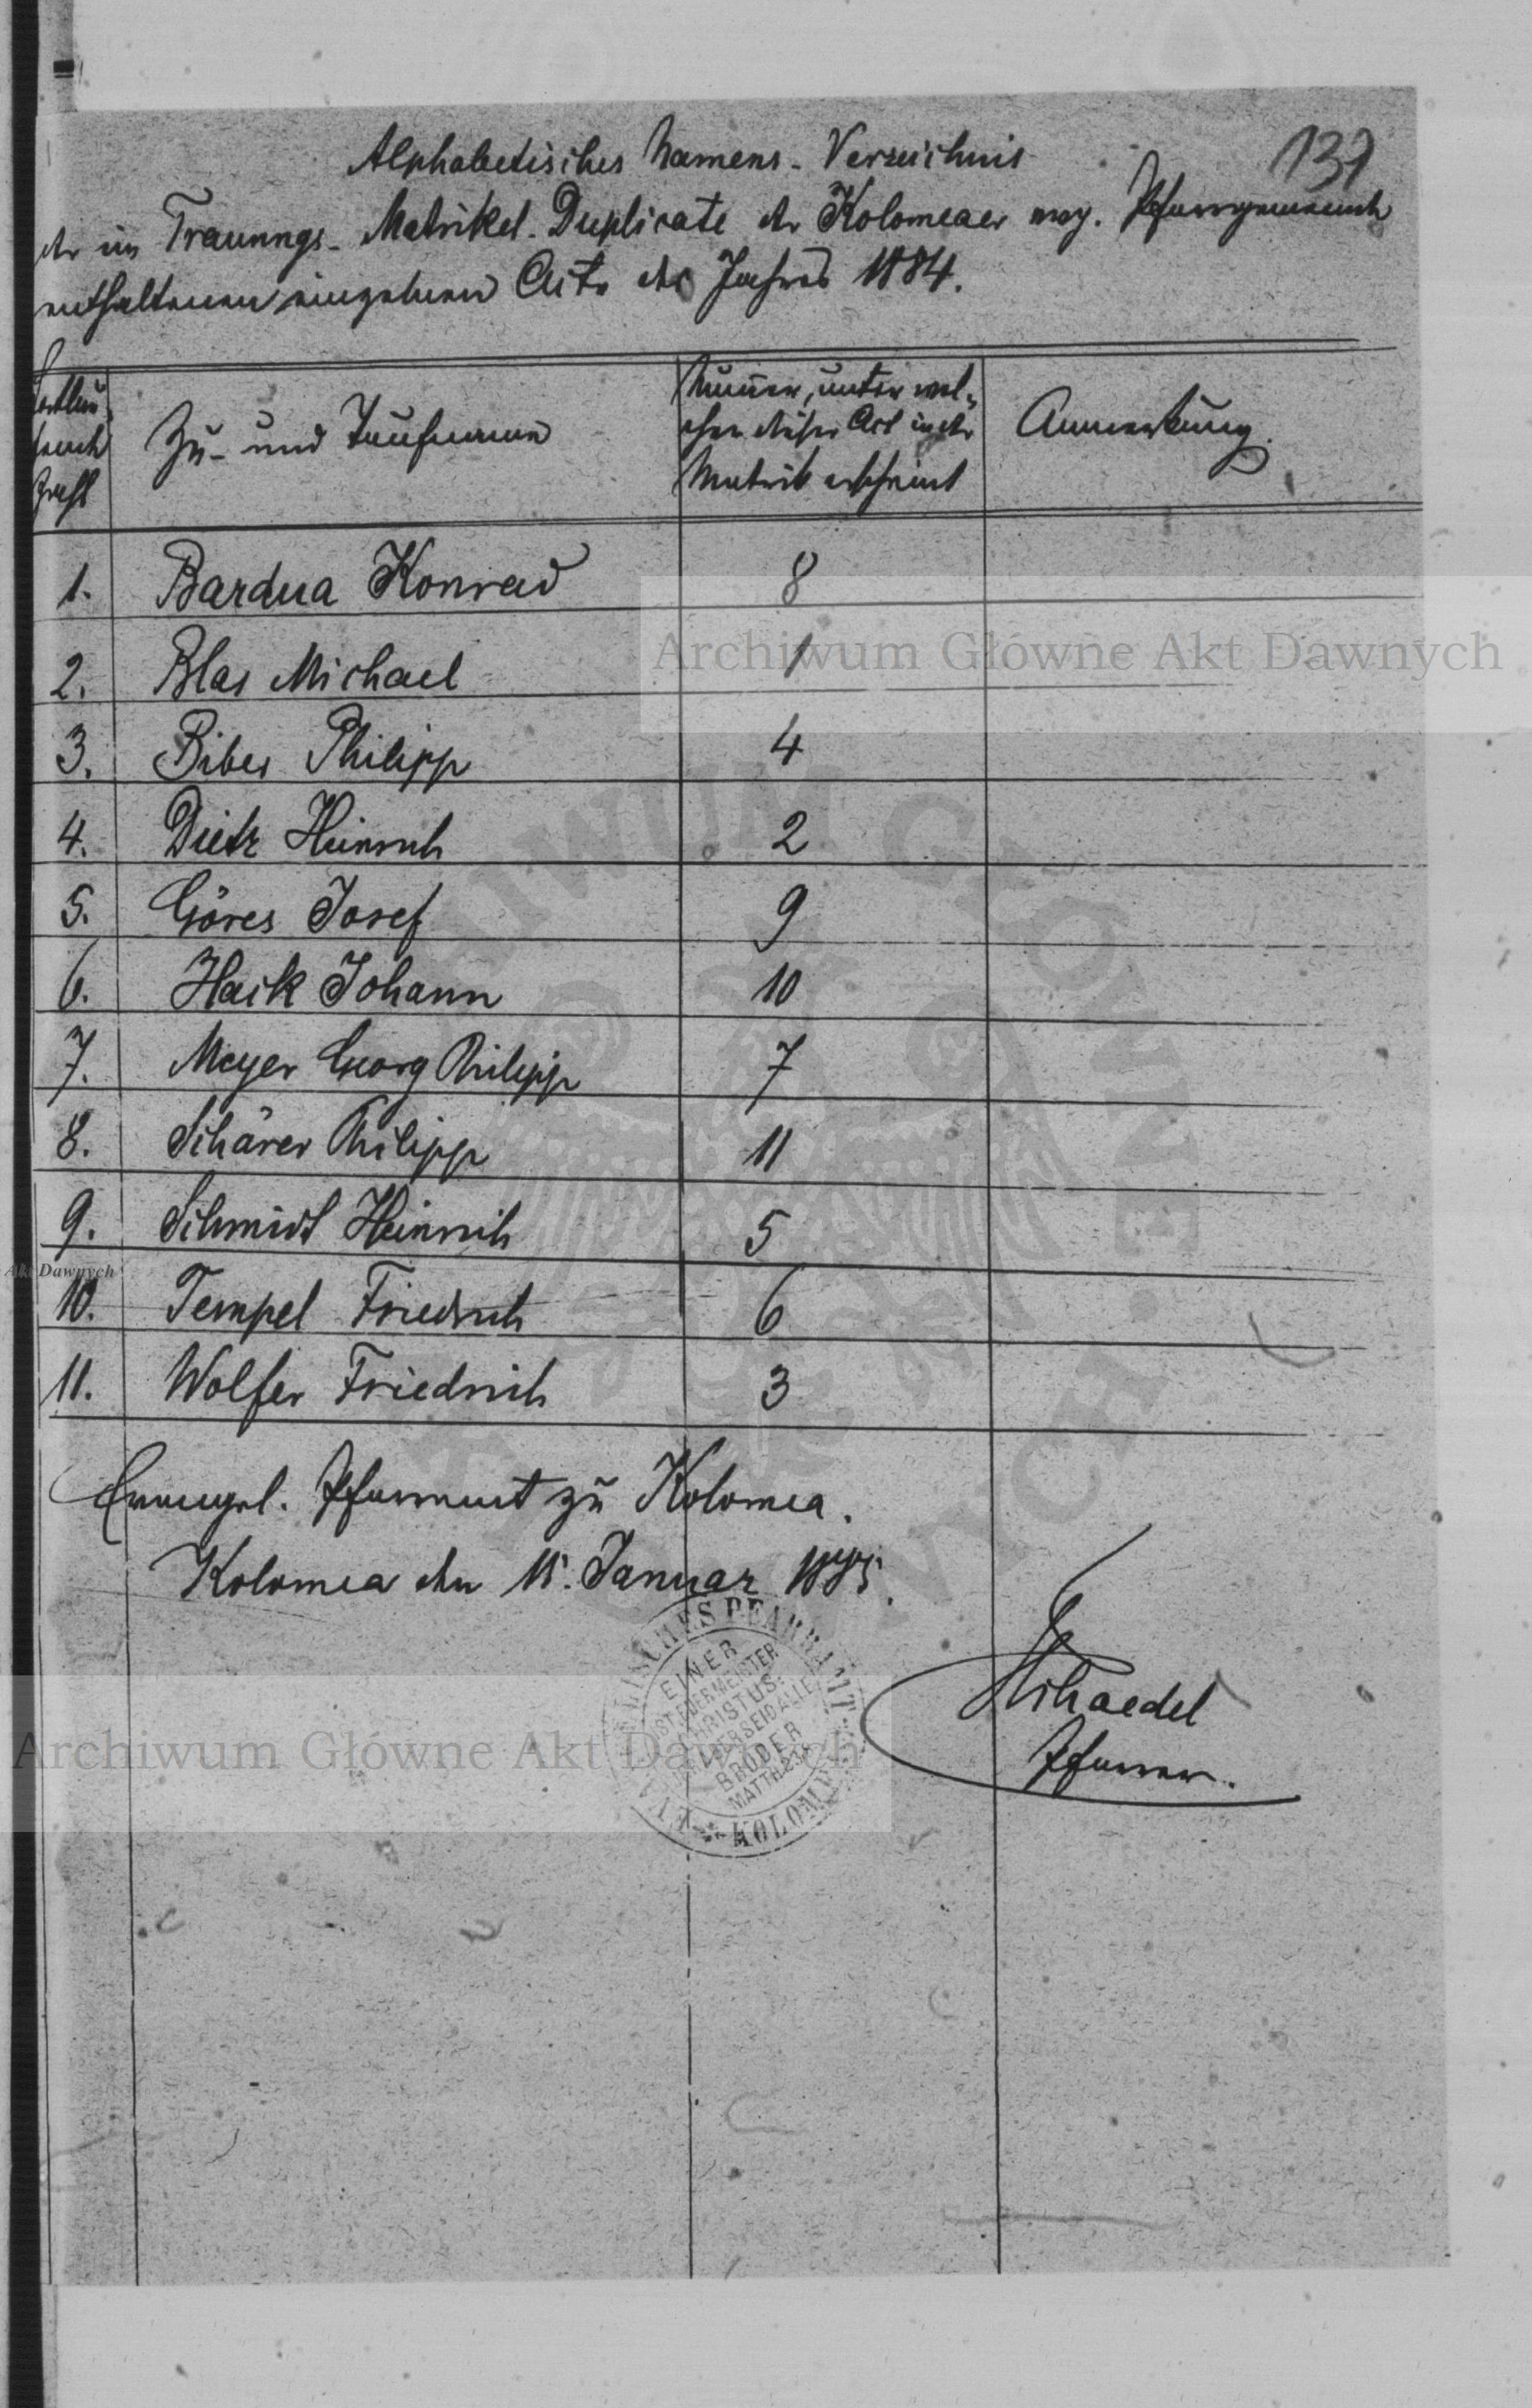 137
Alphabetisches Namens-Verzeichnis
der im Trauungs-Matrikel-Duplicate der Kolomeaer evag. Pfarrgemeinde
enthaltenen einzelnen Acte des Jahres 1884.
Fortlau
fende
Zahl
Zu- und Taufname
Num̄er, unter wel-
cher dieser Act in der
Matrik erscheint
Anmerkung.
1. Bardua Konrad 8
2. Blas Michael 1
3. Biber Philipp 4
4. Dietz Heinrich 2
5. Göres Josef 9
6. Hack Johann 10
7. Meyer Georg Philipp 7
8. Schärer Philipp 11
9. Schmidt Heinrich 5
10. Tempel Friedrich 6
11. Wolfer Friedrich 3
Evangel. Pfarramt zu Kolomea.
Kolomea den 15. Januar 1885.
Pfarrer.
EVANGELISCHES PFARRAMT KOLOMEA
EINER
IST EUER MEISTER
CHRISTUS
IHR ABER SEID ALLE
BRÜDER
MATTH. 23,
Archiwum Główne Akt Dawnych
Akt Dawnych
Archiwum Główne Akt Dawnych